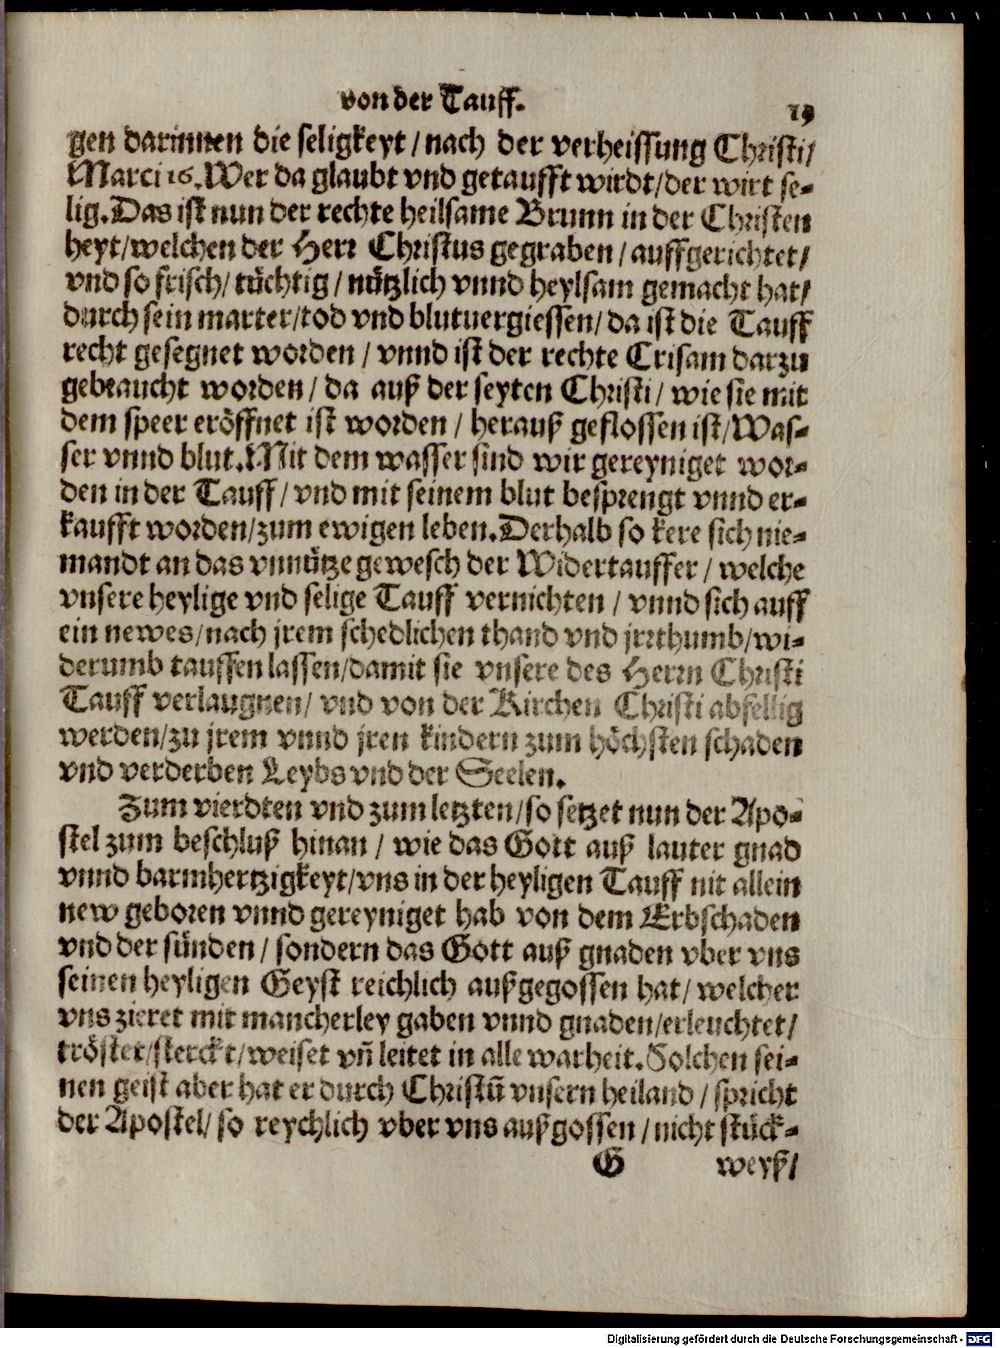 von der Tauff.
19
gen darinnen die seligkeyt / nach der verheissung Christi/
Marci 16. Wer da glaubt vnd getaufft wirdt/der wirt se-
lig. Das ist nun der rechte heilsame Brunn in der Christen
heyt/welchen der Herr Christus gegraben / auffgerichtet/
vnd so frisch/ tüchtig / nützlich vnnd heylsam gemacht hat/
durch sein marter/tod vnd blutuergiessen/ da ist die Tauff
recht gesegnet worden / vnnd ist der rechte Crisam darzu
gebraucht worden / da auß der seyten Christi / wie sie mit
dem speer eröffnet ist worden / herauß geflossen ist/Was-
ser vnnd blut. Mit dem wasser sind wir gereyniget wor-
den in der Tauff / vnd mit seinem blut besprengt vnnd er-
kaufft worden/zum ewigen leben. Derhalb so kere sich nie-
mandt an das vnnütze gewesch der Widertauffer / welche
vnsere heylige vnd selige Tauff vernichten / vnnd sich auff
ein newes/nach jrem schedlichen thand vnd jrrthumb/wi-
derumb tauffen lassen/damit sie vnsere des Herrn Christi
Tauff verlaugnen/ vnd von der Kirchen Christi abfellig
werden/zu jrem vnnd jren kindern zum höchsten schaden
vnd verderben Leybs vnd der Seelen.
Zum vierdten vnd zum letzten/so setzet nun der Apo-
stel zum beschluß hinan / wie das Gott auß lauter gnad
vnnd barmhertzigkeyt/vns in der heyligen Tauff nit allein
new geboren vnnd gereyniget hab von dem Erbschaden
vnd der sünden / sondern das Gott auß gnaden vber vns
seinen heyligen Geyst reichlich außgegossen hat/ welcher
vns zieret mit mancherley gaben vnnd gnaden/erleuchtet/
tröstet/sterckt/weiset vñ leitet in alle warheit. Solchen sei-
nen geist aber hat er durch Christū vnsern heiland / spricht
der Apostel/ so reychlich vber vns außgossen / nicht stück-
G weyß/
Digitalisierung gefördert durch die Deutsche Forschungsgemeinschaft - DFG